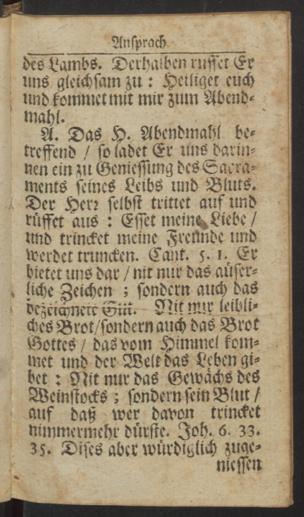 Ansprach
des Lambs. Derhalben ruffet Er
uns gleichsam zu : Heiliget euch
und kommet mit mir zum Abend-
mahl.
A. Das H. Abendmahl be-
treffend / so ladet Er uns darin-
nen ein zu Geniessung des Sacra-
ments seines Leibs und Bluts.
Der Herr selbst trittet auf und
rüffet aus : Esset meine Liebe /
und trincket meine Freunde und
werdet truncken. Cant. 5. 1. Er
bietet uns dar / nit nur das äüser-
liche Zeichen ; sondern auch das
bezeichnete Gut. Nit nur leibli-
ches Brot / sondern auch das Brot
Gottes / das vom Himmel kom-
met und der Welt das Leben gi-
bet : Nit nur das Gewächs des
Weinstocks ; sondern sein Blut /
auf daß wer davon trincket
nimmermehr dürste. Joh. 6. 33.
35. Dises aber würdiglich zuge-
niessen